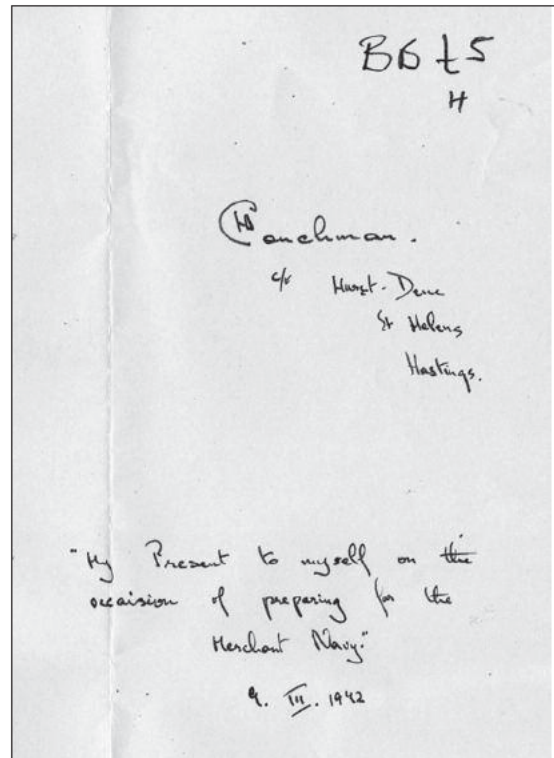 £5
H
Couchman.
c/o Hurst-Dene
St Helens
Hastings.
"My Present to myself on the
occaision of preparing for the
Merchant Navy."
9. III. 1942